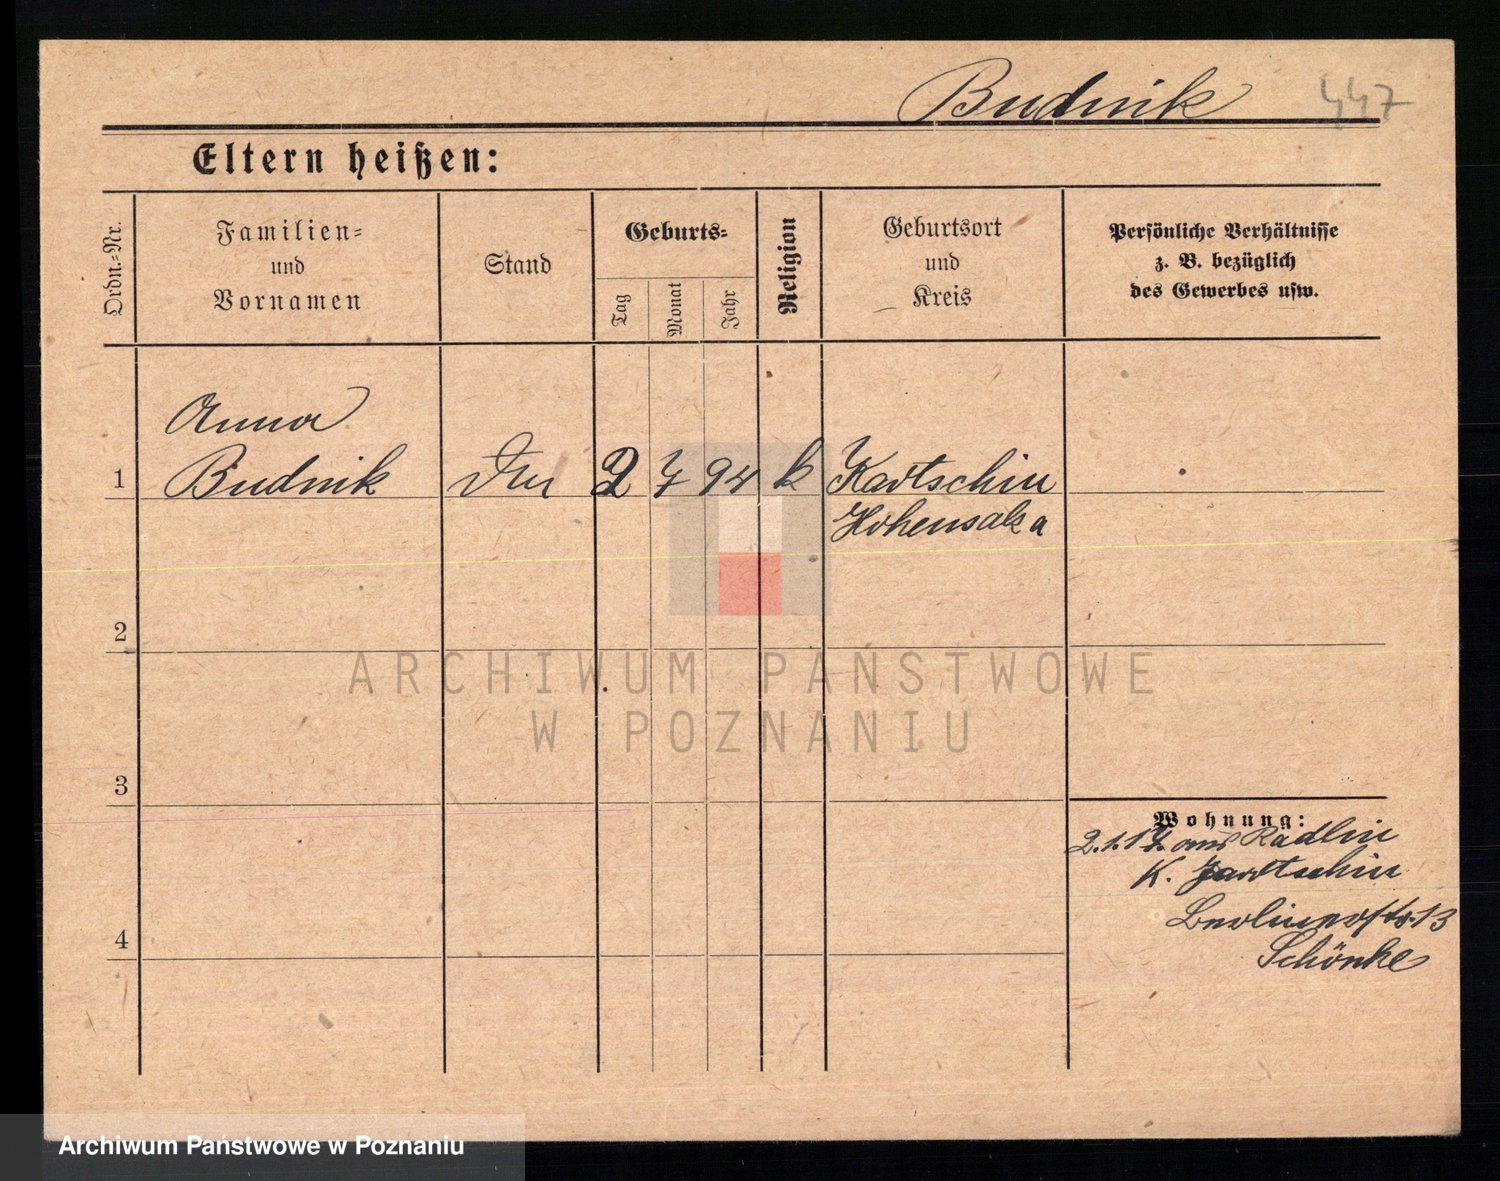 Budnik 447
Eltern heißen:
Ordn.-Nr.
Familien-
und
Vornamen
Stand
Geburts-
Tag
Monat
Jahr
Religion
Geburtsort
und
Kreis
Persönliche Verhältnisse
z. B. bezüglich
des Gewerbes usw.
Anna
1 Budnik 2 7 94 k Kartschin
Hohensalza
2
3
4
Wohnung:
2.1.17. aus Radlin
K. Jartschin
Berlinerstr. 13
Schönke
ARCHIWUM PAŃSTWOWE
W POZNANIU
Archiwum Państwowe w Poznaniu